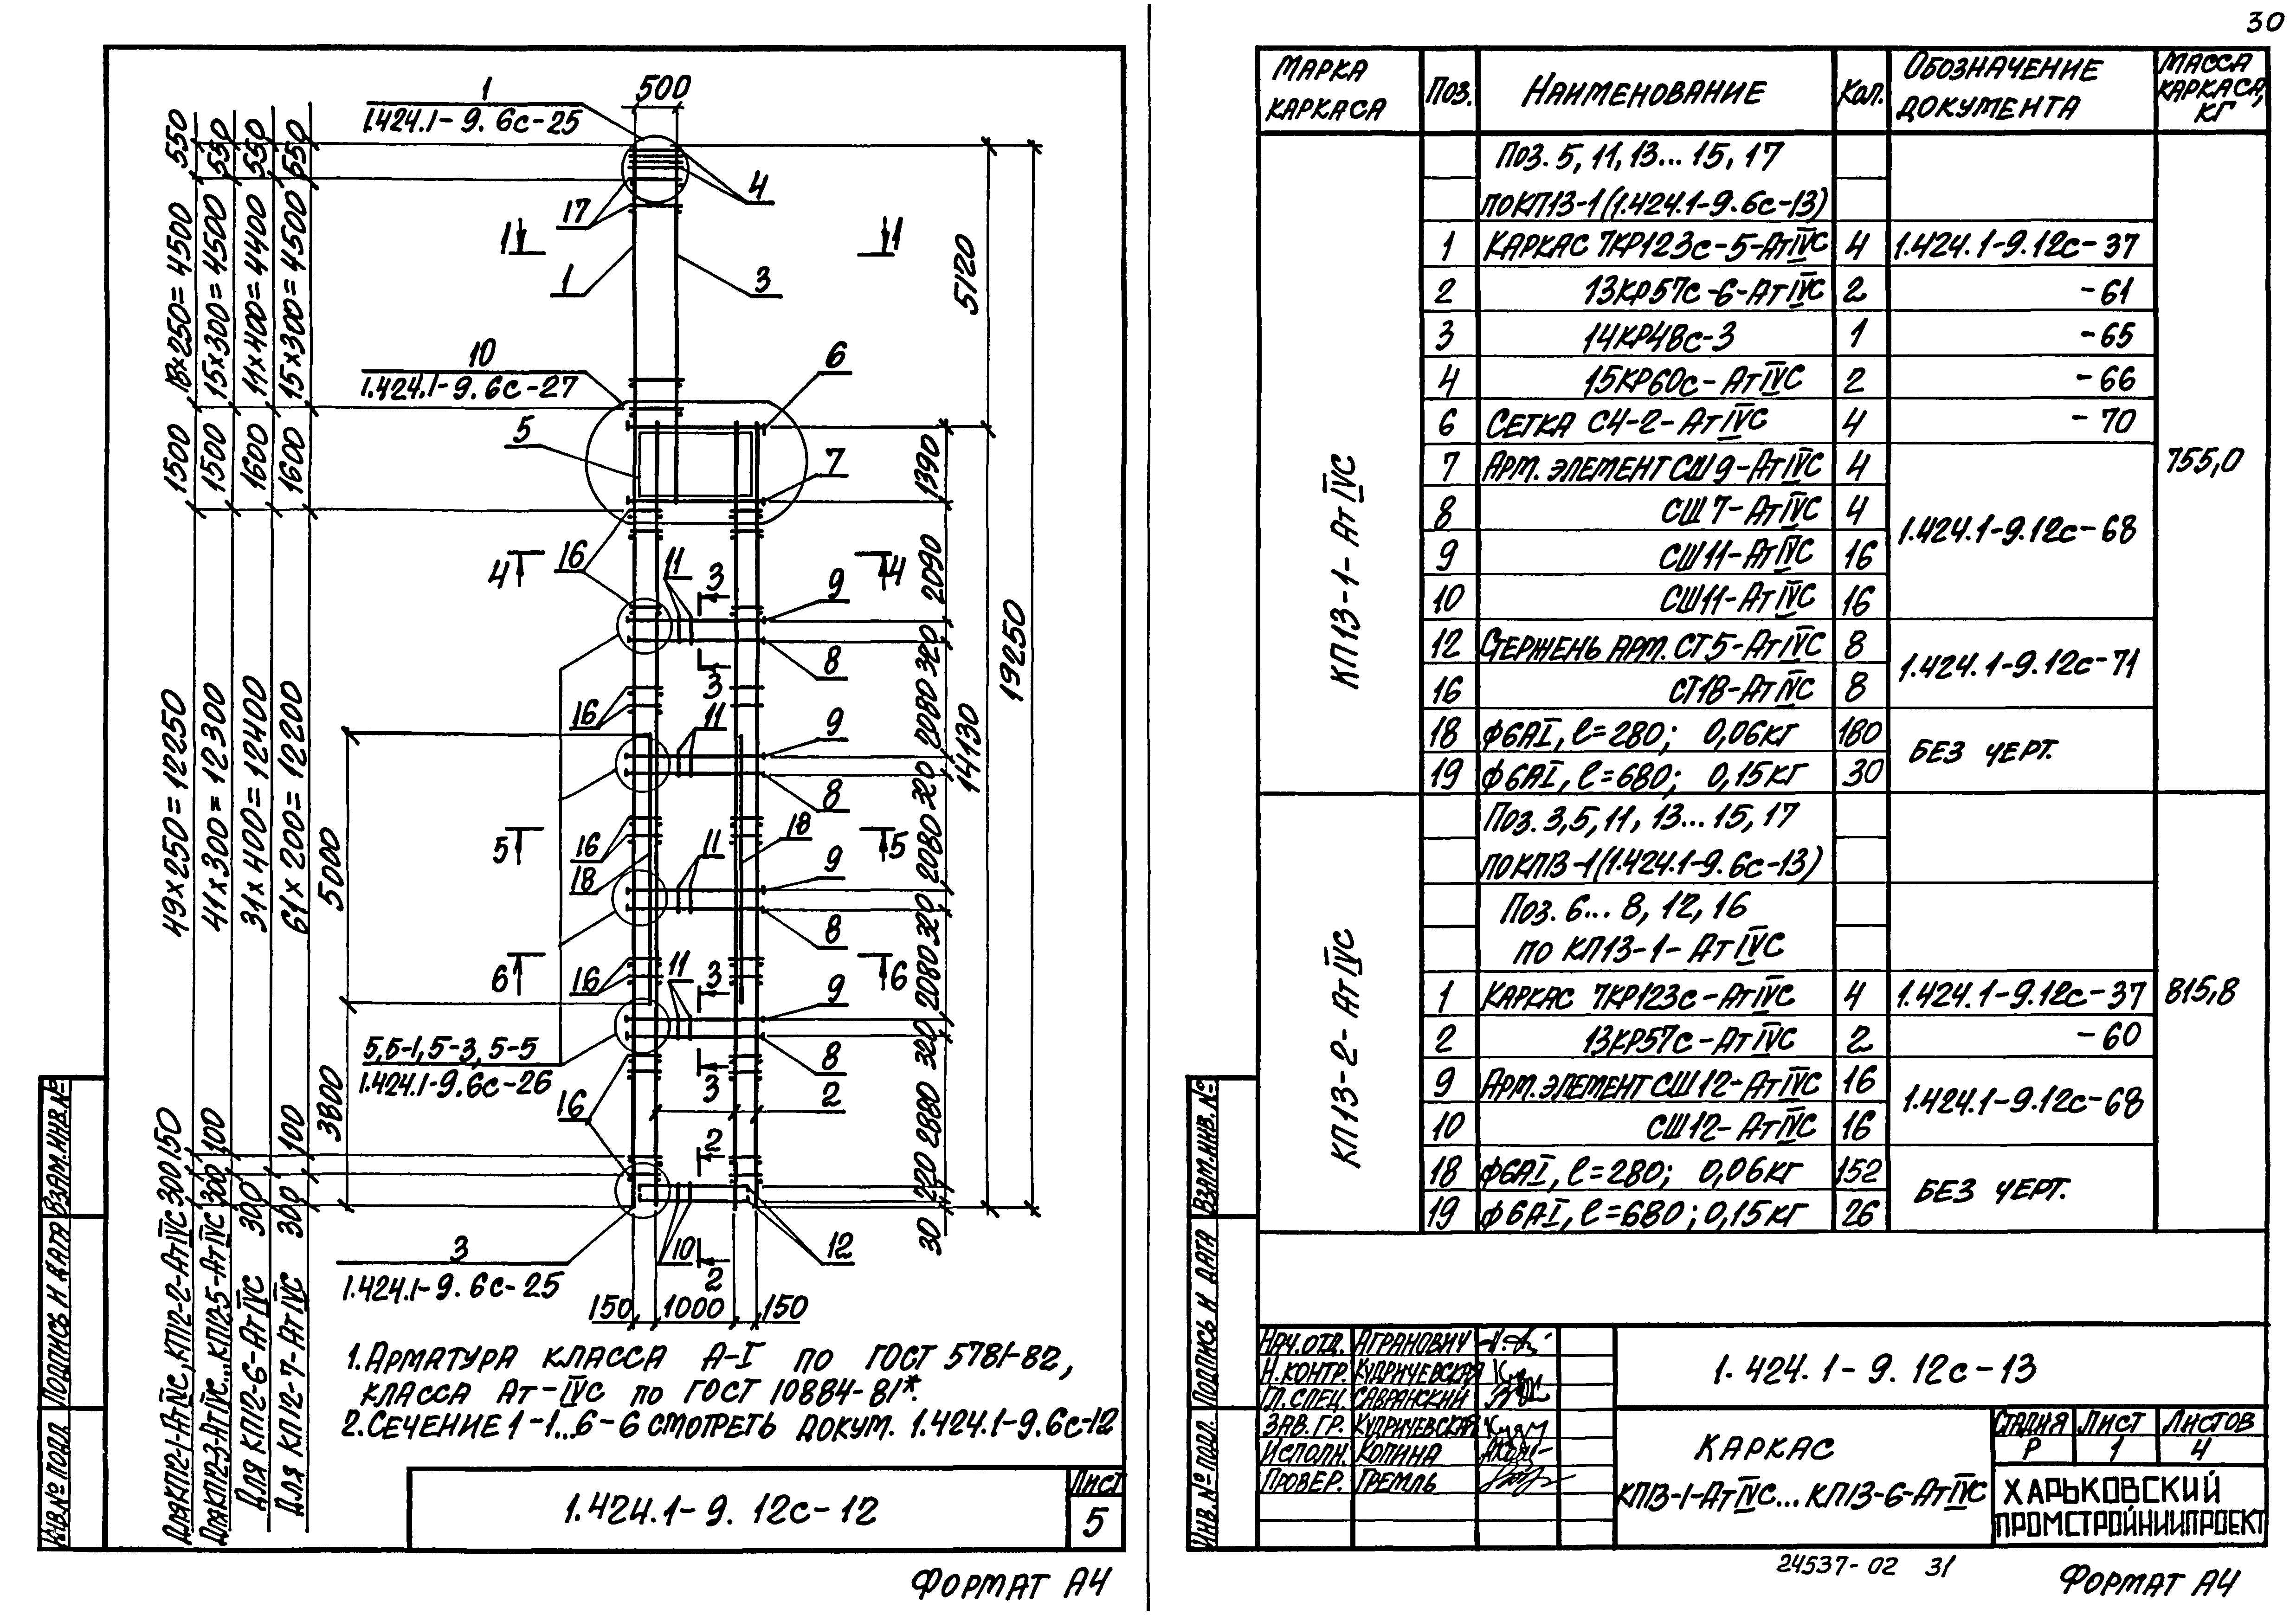 30
1
1.424.1-9. 6с-25
500
4
17
1
1
1
3
10
1.424.1-9. 6с-27
6
5
7
4
16
11
3
4
9
8
3
16
11
9
8
5
16
18
11
18
5
9
8
6
16
11
3
6
9
5,5-1,5-3, 5-5
1.424.1-9.6с-26
8
3
2
16
2
3
1.424.1-9. 6с-25
10
2
12
150 1000 150
550 550 550 550
18х250=4500
15х300=4500
11х400=4400
15х300=4500
1500 1500 1600 1600
49х250=12250
41х300=12300
31х400=12400
61х200=12200
5000
3800
150 100 100
300 300 300 300
Для КП12-1-АтIVС, КП12-2-АтIVС
Для КП12-3-АтIVС...КП12-5-АтIVС
Для КП12-6-АтIVС
Для КП12-7-АтIVС
5120
14130
19250
1390
2090
320
2080
320
2080
320
2080
320
2880
220
30
1. Арматура класса А-I по ГОСТ 5781-82,
класса Ат-IVС по ГОСТ 10884-81*.
2. Сечение 1-1...6-6 смотреть докум. 1.424.1-9.6с-12
1.424.1-9. 12с-12
Лист
5
Формат А4
Взам.инв.№
Подпись и дата
Инв.№ подл
Марка каркаса Поз. Наименование Кол. Обозначение документа Масса каркаса, кг
КП13-1-АтIVС
755,0
Поз. 5, 11, 13... 15, 17
по КП13-1 (1.424.1-9.6с-13)
1 Каркас 7КР123с-5-АтIVС 4 1.424.1-9.12с-37
2 13КР57с-6-АтIVС 2 -61
3 14КР48с-3 1 -65
4 15КР60с-АтIVС 2 -66
6 Сетка С4-2-АтIVС 4 -70
7 Арм. элемент СШ9-АтIVС 4
8 СШ7-АтIVС 4 1.424.1-9.12с-68
9 СШ11-АтIVС 16
10 СШ11-АтIVС 16
12 Стержень арм. СТ5-АтIVС 8 1.424.1-9.12с-71
16 СТ18-АтIVС 8
18 ф6АI, ℓ=280; 0,06кг 180 Без черт.
19 ф6АI, ℓ=680; 0,15кг 30
КП13-2-АтIVС
815,8
Поз. 3,5, 11, 13... 15, 17
по КП13-1 (1.424.1-9.6с-13)
Поз. 6... 8, 12, 16
по КП13-1-АтIVС
1 Каркас 7КР123с-АтIVС 4 1.424.1-9.12с-37
2 13КР57с-АтIVС 2 -60
9 Арм.элемент СШ12-АтIVС 16 1.424.1-9.12с-68
10 СШ12-АтIVС 16
18 ф6АI, ℓ=280; 0,06кг 152 Без черт.
19 ф6АI, ℓ=680; 0,15кг 26
Взам.инв.№
Подпись и дата
Инв.№ подл.
Нач.отд. Агранович
Н.контр. Кудричевская
Гл.спец. Савранский
Зав.гр. Кудричевская
Исполн. Копина
Провер. Гремль
1.424.1-9. 12с-13
Каркас
КП13-1-АтIVС...КП13-6-АтIVС
Стадия Лист Листов
Р 1 4
Харьковский
Промстройниипроект
24537-02 31
Формат А4